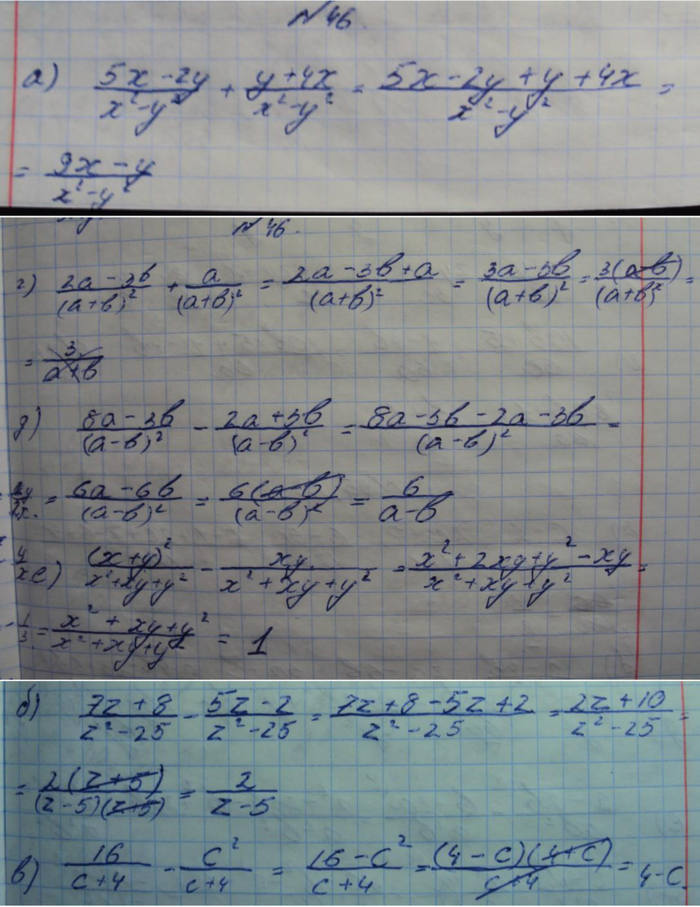 №46.
а) (5x-2y)/(x²-y²) + (y+4x)/(x²-y²) = (5x-2y+y+4x)/(x²-y²) =
= (9x-y)/(x²-y²)
№46.
г) (2a-3b)/(a+b)² + a/(a+b)² = (2a-3b+a)/(a+b)² = (3a-3b)/(a+b)² = 3(a-b)/(a+b)² =
= 3/(a+b)
д) (8a-3b)/(a-b)² - (2a+3b)/(a-b)² = (8a-3b-2a-3b)/(a-b)² =
= (6a-6b)/(a-b)² = 6(a-b)/(a-b)² = 6/(a-b)
е) (x+y)²/(x²+xy+y²) - xy/(x²+xy+y²) = (x²+2xy+y²-xy)/(x²+xy+y²) =
= (x²+xy+y²)/(x²+xy+y²) = 1
б) (7z+8)/(z²-25) - (5z-2)/(z²-25) = (7z+8-5z+2)/(z²-25) = (2z+10)/(z²-25) =
= 2(z+5)/(z-5)(z+5) = 2/(z-5)
в) 16/(c+4) - c²/(c+4) = (16-c²)/(c+4) = (4-c)(4+c)/(c+4) = 4-c.